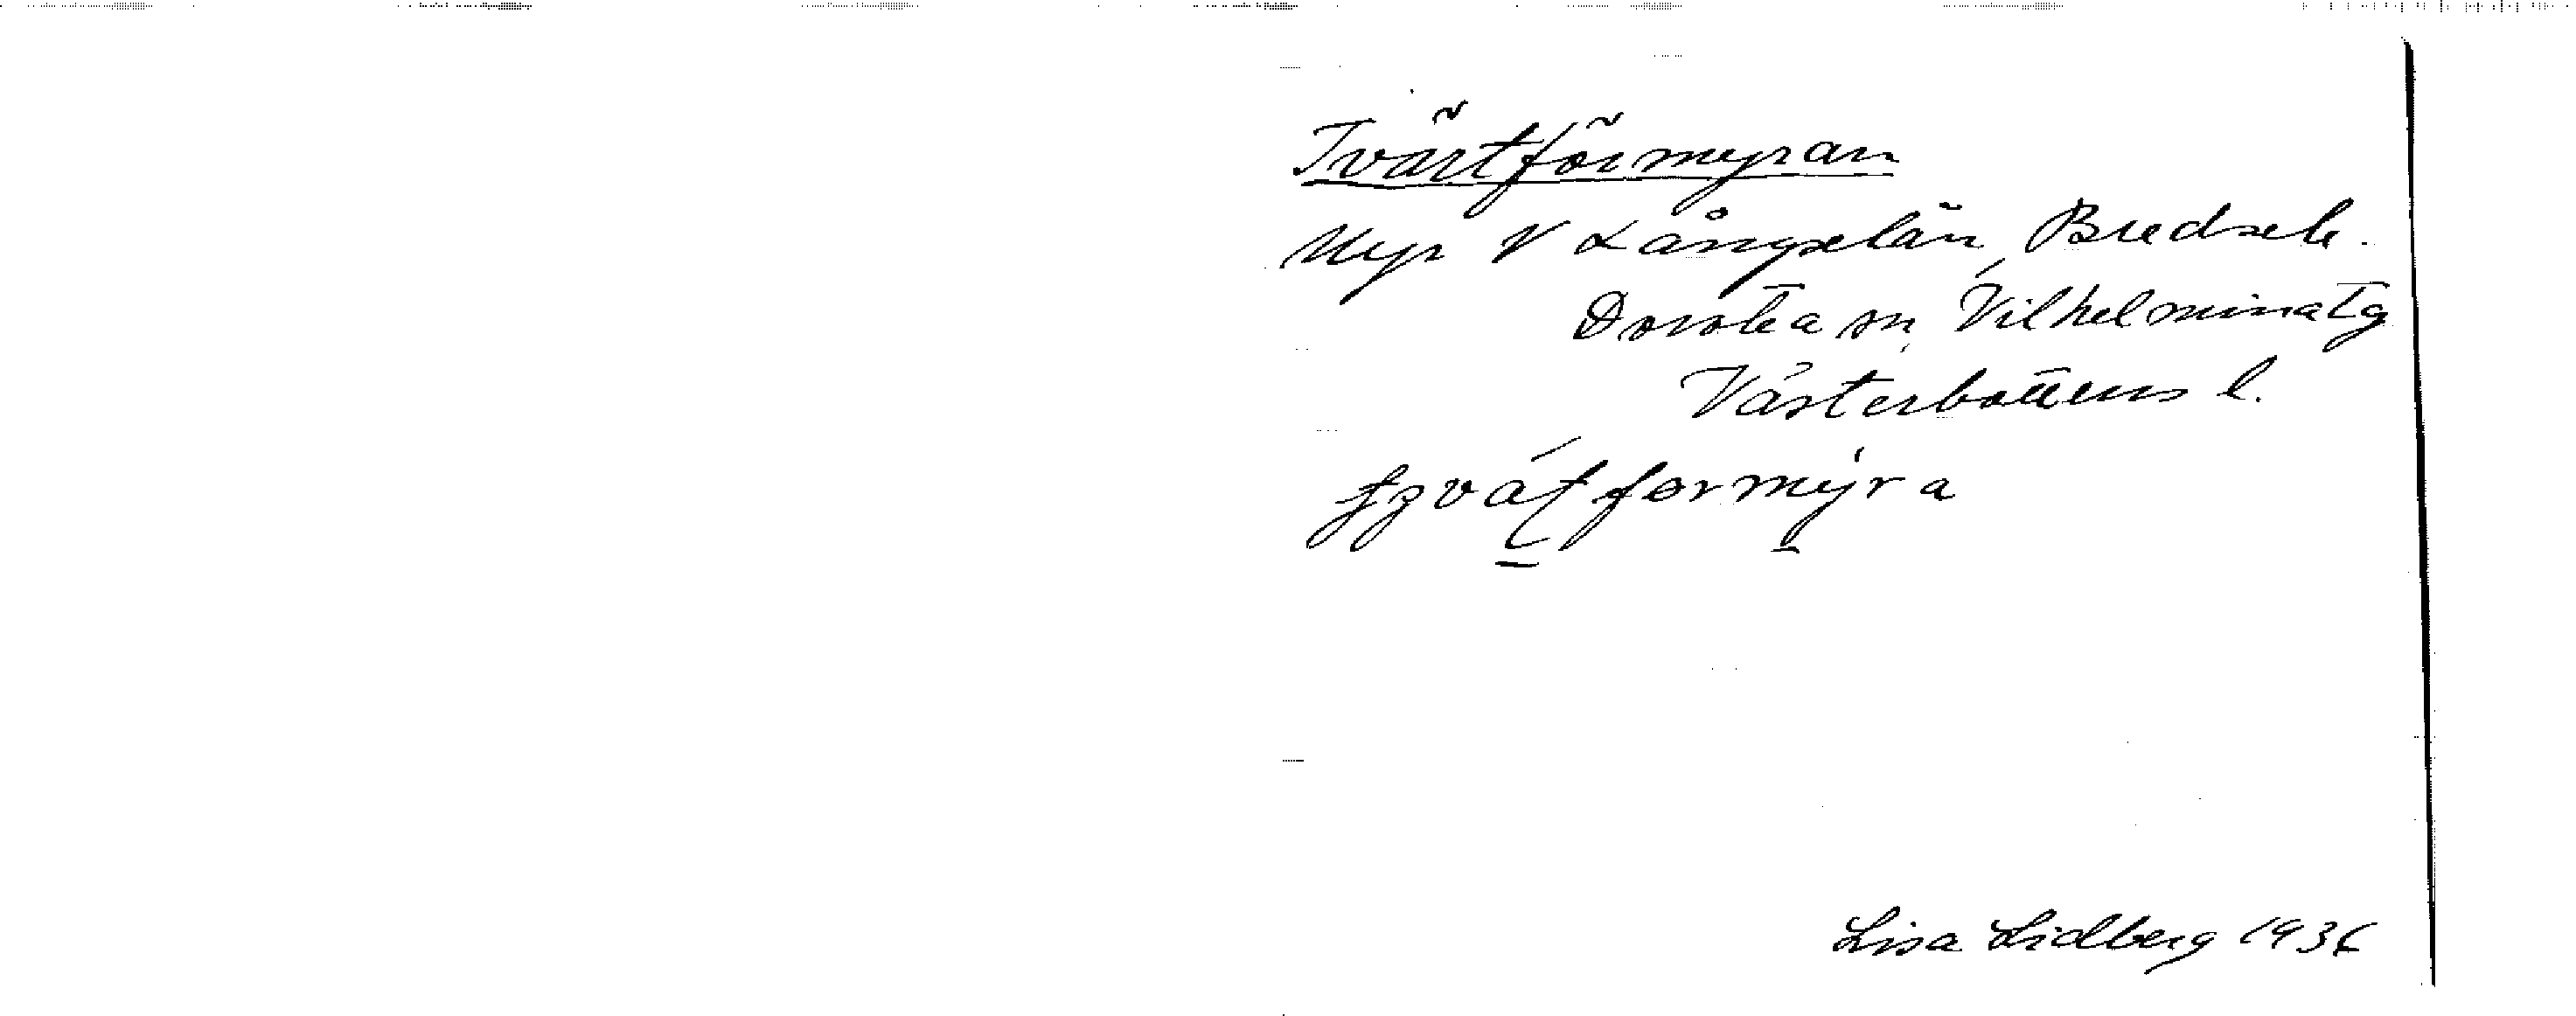 Tvärtförmyran
Myr V Långselån, Bredsele.
Dorotea sn, Vilhelmina tg
Västerbottens l.
formýra
Lisa Lidberg 1936